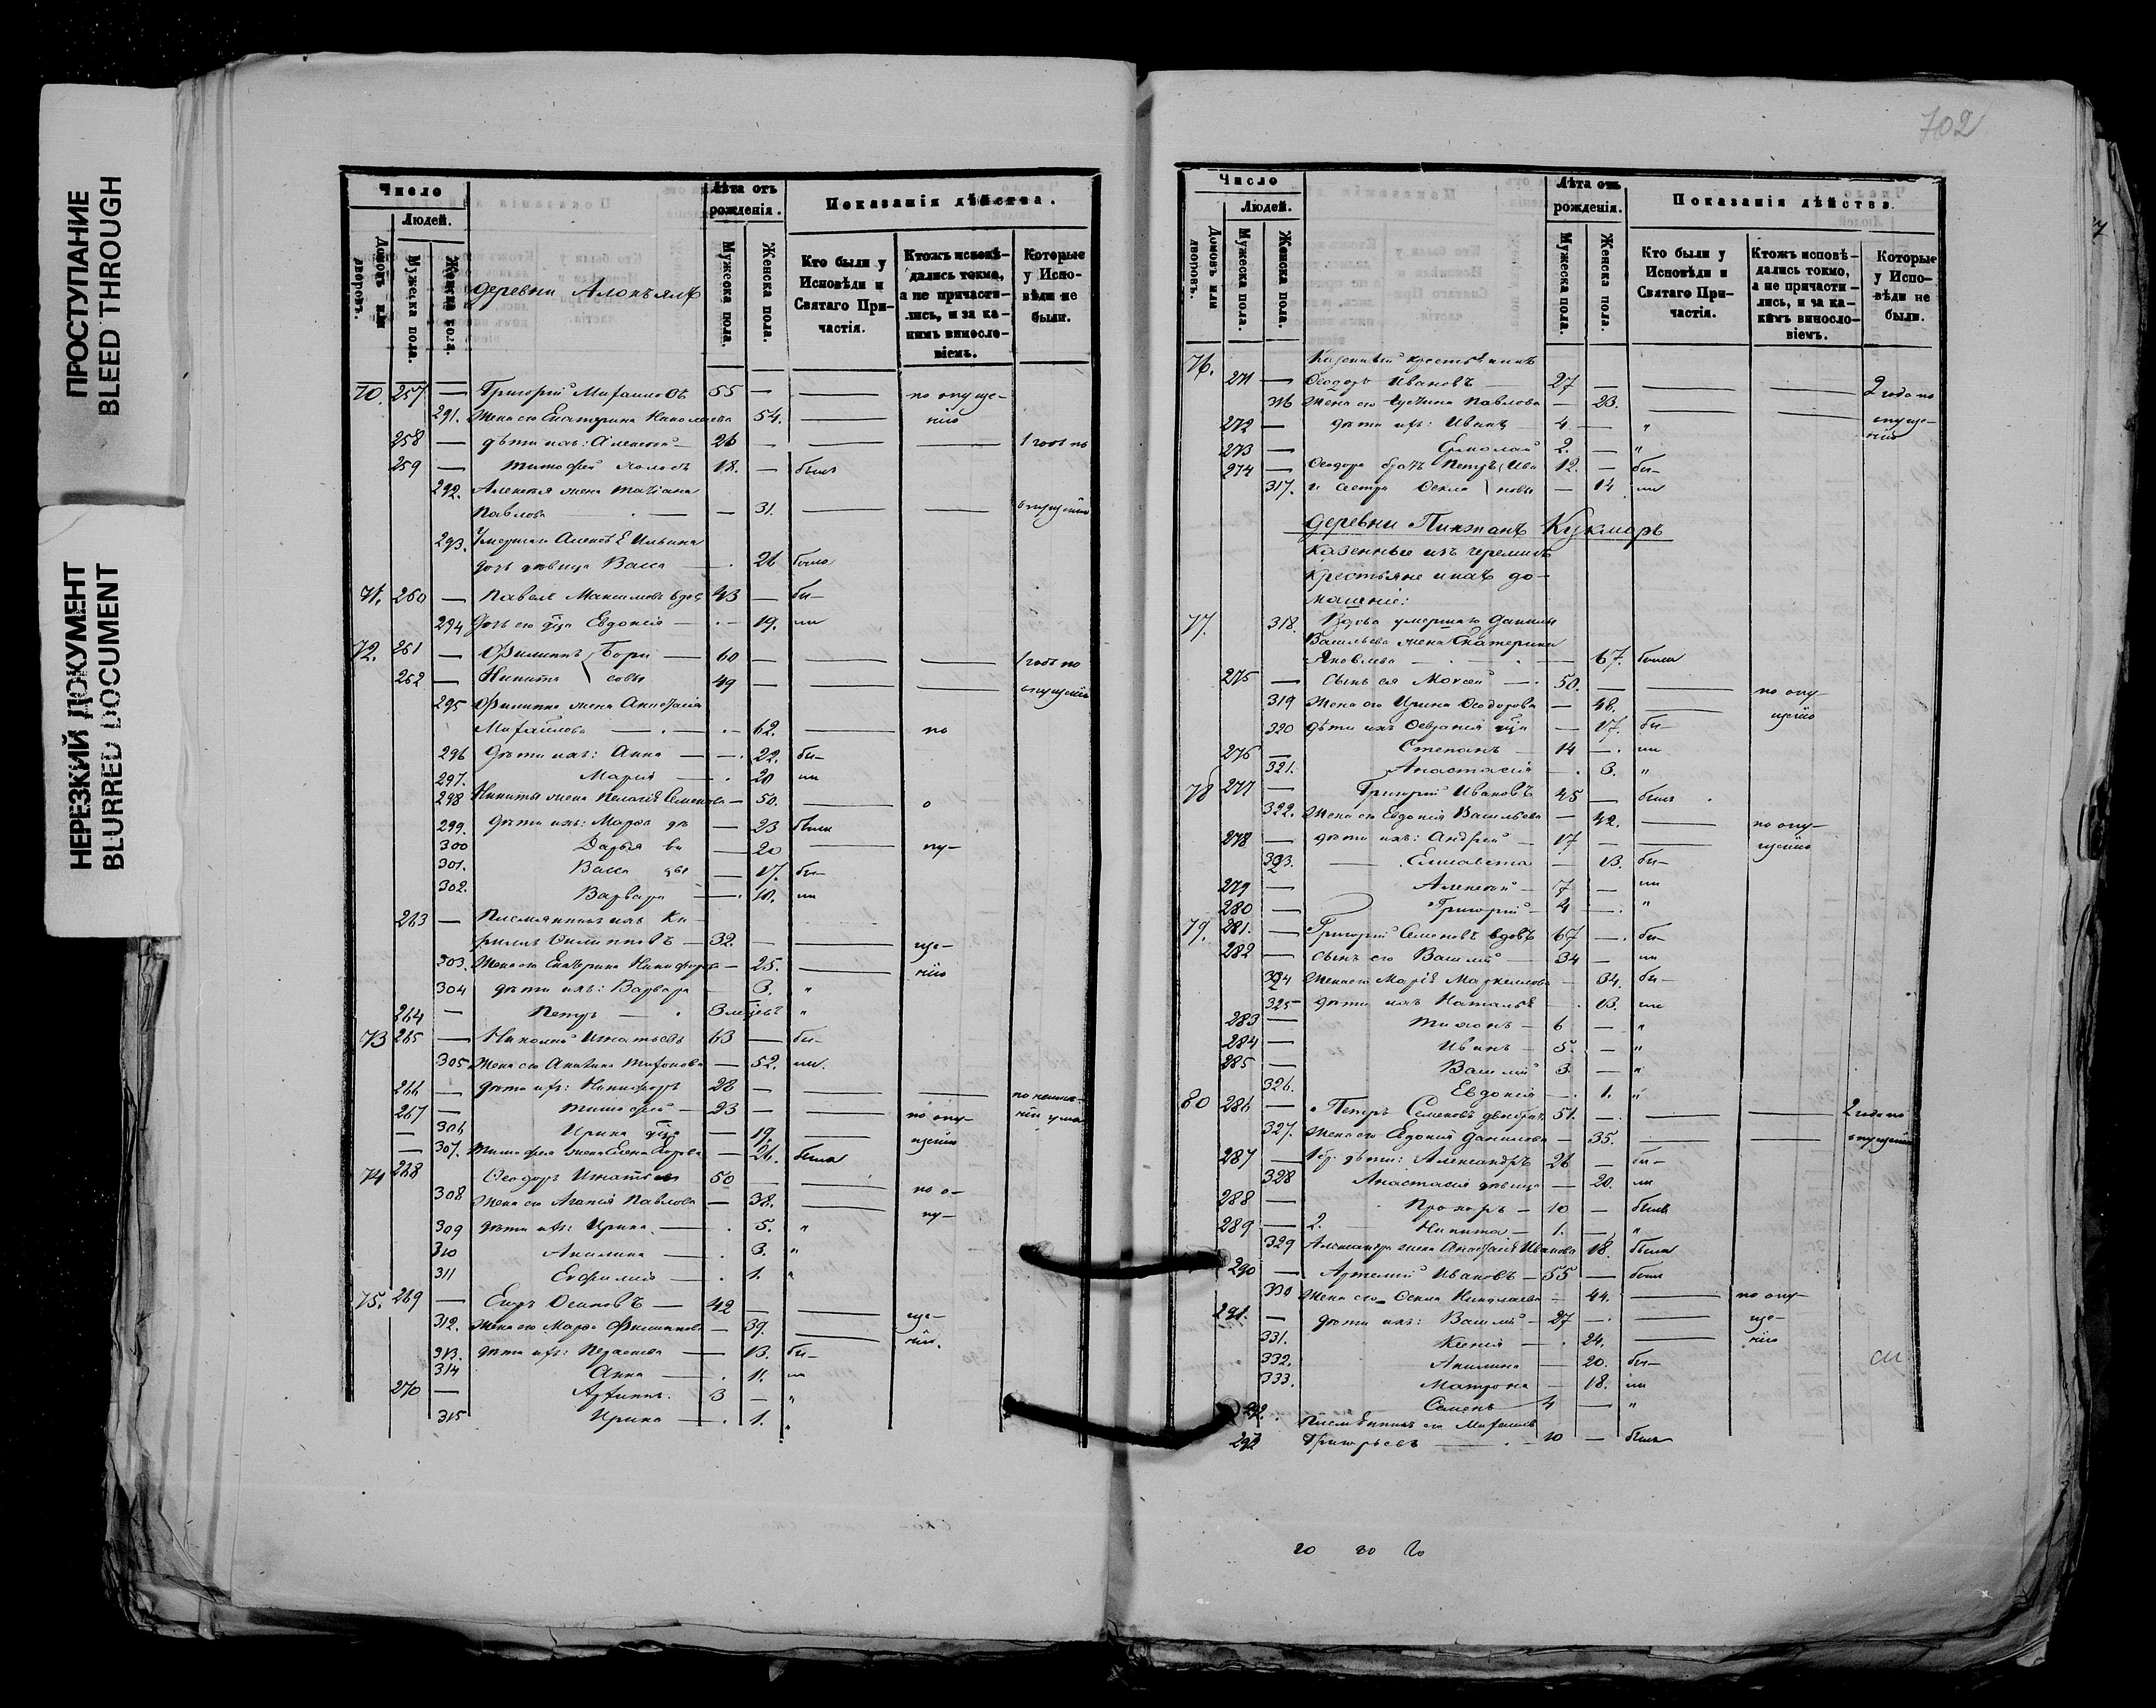 ПРОСТУПАНИЕ
BLEED THROUGH
НЕРЕЗКИЙ ДОКУМЕНТ
BLURRED DOCUMENT
Число
Людей.
Домовъ или дворовъ.
Мужеска пола.
Женска пола.
Лѣта отъ рожденія.
Мужеска пола.
Женска пола.
Показанія дѣйства.
Кто были у Исповѣди и Святаго Причастія.
Ктожъ исповѣдались токмо, а не причастились, и за какимъ винословіемъ.
Которые у Исповѣди не были.
деревни
70. 257 — Григорій Михайловъ 55 — по опуще-
291. Жена его Екатерина Николаева 54. нію
258 — дѣти ихъ: Алексѣй — 26 — 1 годъ по
259 — Тимофей холостъ 18. — былъ
292. Алексѣя жена Татіана
Павлова — 31. опущенію
293. Умершаго
дочь дѣвица Васса — 26 была
71. 260 — Павелъ Максимовъ вдов 43 — бы-
294 Дочь его дѣвца Евдокія — 19. ли
72. 261 — Филиппъ Бори- 60 — 1 годъ по
262 — Никита совы 49 — опущенію
295 Филиппа жена Анастасія
Михайлова — 62. по
296 Дѣти ихъ: Анна — 22. бы-
297. Марія — 20 ли
298 Никиты жена Пелагія Семенова — 50. о
299. Дѣти ихъ: Марѳа дѣ — 23 были
300 Дарья ви — 20 пу-
301. Васса цы — 17. бы-
302. Варвара — 10. ли
263 — Племянникъ ихъ Ки-
риллъ Филипповъ — 32. — ще-
303. Жена его Екатерина Никифорова — 25. нію
304 дѣти ихъ: Варвара 3. "
264 — Петръ — 3 мѣсяцъ "
73 265 — Николай Игнатьевъ 63 — бы-
305 Жена его Акилина Тихонова — 52. ли.
266 — дѣти ихъ: Никифоръ 28 —
267 — Тимофей — 23 — по опу-
306 Ирина дѣвца — 19. щенію
307. Тимофея жена Елена — 26. была
74 268 Ѳеодоръ Игнатьевъ 50 по о-
308 Жена его Агапія Павлова — 38. пу-
309 дѣти ихъ: Ирина — 5. "
310 Акилина — 3. "
311 Евфимія — 1. "
75. 269 — Егоръ Осиповъ — 42 — ще-
312. Жена его Марѳа Филиппова — 39. нію.
313. дѣти ихъ: — 13. бы-
314 Анна — 11. ли
270 — 3 — "
315 Ирина — 1. "
702
Число
Людей.
Домовъ или дворовъ.
Мужеска пола.
Женска пола.
Лѣта отъ рожденія.
Мужеска пола.
Женска пола.
Показанія дѣйства.
Кто были у Исповѣди и Святаго Причастія.
Ктожъ исповѣдались токмо, а не причастились, и за какимъ винословіемъ.
Которые у Исповѣди не были.
76. Казенный крестьянинъ
271 — Ѳеодоръ Ивановъ 27 — 2 года по
316 Жена его Павлова — 23. опуще-
272 — дѣти ихъ: Иванъ — 4. — " нію
273 — Ермолай 2. — "
274 — Ѳеодора братъ Петръ Ива 12. — бы-
317. и сестра Ѳекла новы — 14 ли
деревни Кукмаръ
казенные изъ черемисъ
крестьяне и ихъ до-
машніе:
77. 318. Вдова умершаго Даніила
Васильева жена Екатерина
Яковлева — 67. была
275 — сынъ ея Моисей — 50. по опу-
319 Жена его Ирина Ѳеодорова — 48. щенію
320 дѣти ихъ дѣвца — 17. бы-
276 — Степанъ — 14 — ли
321. Анастасія — 3. "
78 277 — Григорій Ивановъ 45 — былъ
322. Жена его Евдокія Васильева — 42. по опу-
278 — дѣти ихъ: Андрей — 17 — щенію
323. — Елисавета — 13. бы-
279 — Алексѣй — 7 — ли
280 — Григорій — 4 — "
79. 281. — Григорій Семеновъ вдовъ 67 — бы-
282 — сынъ его Василій — 34 — ли
324 Жена его Марія Маркеллова — 34. бы-
325 дѣти ихъ Наталья — 13. ли
283 — Тихонъ — 6 — "
284 — Иванъ — 5. — "
285 — Василій 3. — "
326. Евдокія — 1. "
80 286 — Петръ Семеновъ 51. — 2 года по
327. Жена его Евдокія Данилова — 35. опущенію
287 — 1 бр. дѣти: Александръ 26 — бы-
328 Анастасія дѣвица — 20. ли
288 — Прохоръ — 10 — былъ
289 — 2. Никита — 1. — "
329 Александра жена Анастасія Иванова 18. была
290 — Артемій Ивановъ — 55 — былъ
330 Жена его Ѳекла Николаева — 44. по опу-
291. — дѣти ихъ: Василій — 27 — ще-
331. Ксенія — 24. нію
332. Акилина — 20. бы-
333. Матрона — 18. ли
292. Семенъ 4 — "
Племянникъ его Михаилъ
293 Григорьевъ — 10 — былъ